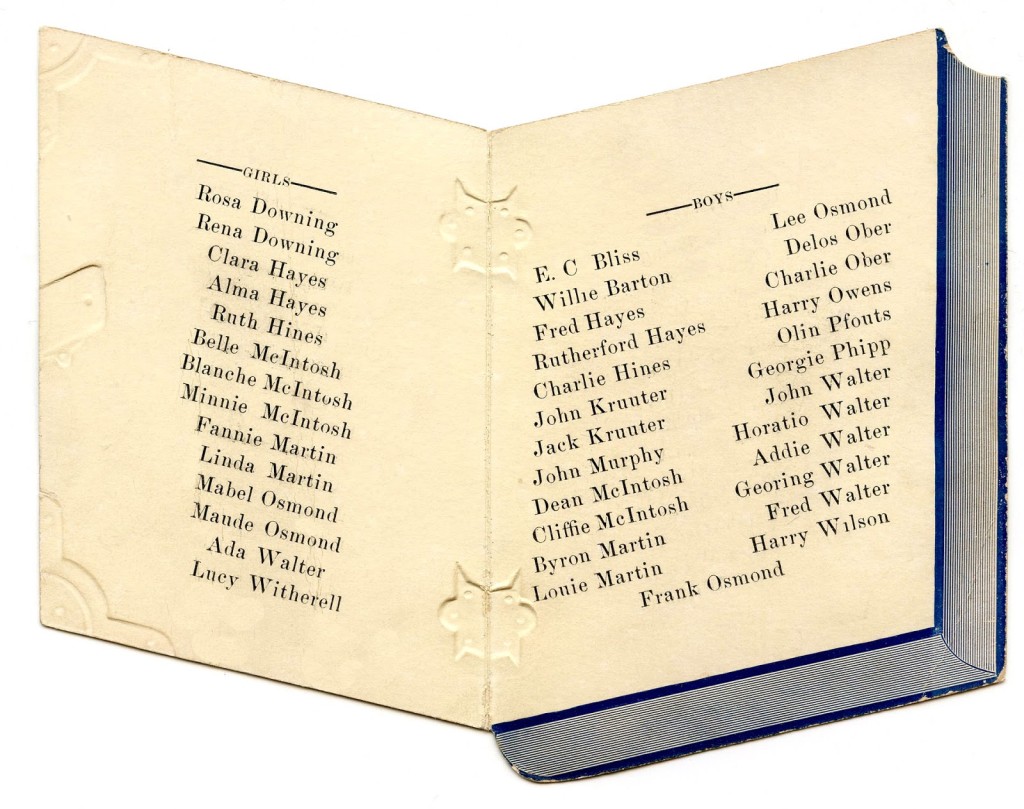 GIRLS
Rosa Downing
Rena Downing
Clara Hayes
Alma Hayes
Ruth Hines
Belle McIntosh
Blanche McIntosh
Minnie McIntosh
Fannie Martin
Linda Martin
Mabel Osmond
Maude Osmond
Ada Walter
Lucy Witherell
BOYS
E. C Bliss
Willie Barton
Fred Hayes
Rutherford Hayes
Charlie Hines
John Kruuter
Jack Kruuter
John Murphy
Dean McIntosh
Cliffie McIntosh
Byron Martin
Louie Martin
Lee Osmond
Delos Ober
Charlie Ober
Harry Owens
Olin Pfouts
Georgie Phipp
John Walter
Horatio Walter
Addie Walter
Georing Walter
Fred Walter
Harry Wilson
Frank Osmond